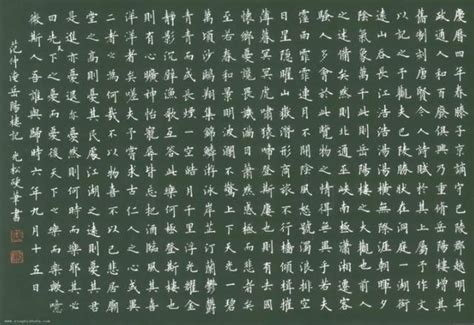 慶曆四年春滕子京謫守巴陵郡越明年
政通人和百廢俱興乃重修岳陽樓增其
舊制刻唐賢今人詩賦於其上屬予作文
以記之予觀夫巴陵勝狀在洞庭一湖銜
遠山吞長江浩浩湯湯橫無際涯朝暉夕
陰氣象萬千此則岳陽樓之大觀也前人
之述備矣然則北通巫峽南極瀟湘遷客
騷人多會於此覽物之情得無異乎若夫
霪雨霏霏連月不開陰風怒號濁浪排空
日星隱耀山嶽潛形商旅不行檣傾楫摧
薄暮冥冥虎嘯猿啼登斯樓也則有去國
懷鄉憂讒畏譏滿目蕭然感極而悲者矣
至若春和景明波瀾不驚上下天光一碧
萬頃沙鷗翔集錦鱗游泳岸芷汀蘭鬱鬱
青青而或長煙一空皓月千里浮光躍金
靜影沉璧漁歌互答此樂何極登斯樓也
則有心曠神怡寵辱皆忘把酒臨風其喜
洋洋者矣嗟夫予嘗求古仁人之心或異
二者之為何哉不以物喜不以己悲居廟
堂之高則憂其民處江湖之遠則憂其君
是進亦憂退亦憂然則何時而樂耶其必
曰先天下之憂而憂後天下之樂而樂歟噫
微斯人吾誰與歸時六年九月十五日
范仲淹岳陽樓記 允松硬筆書